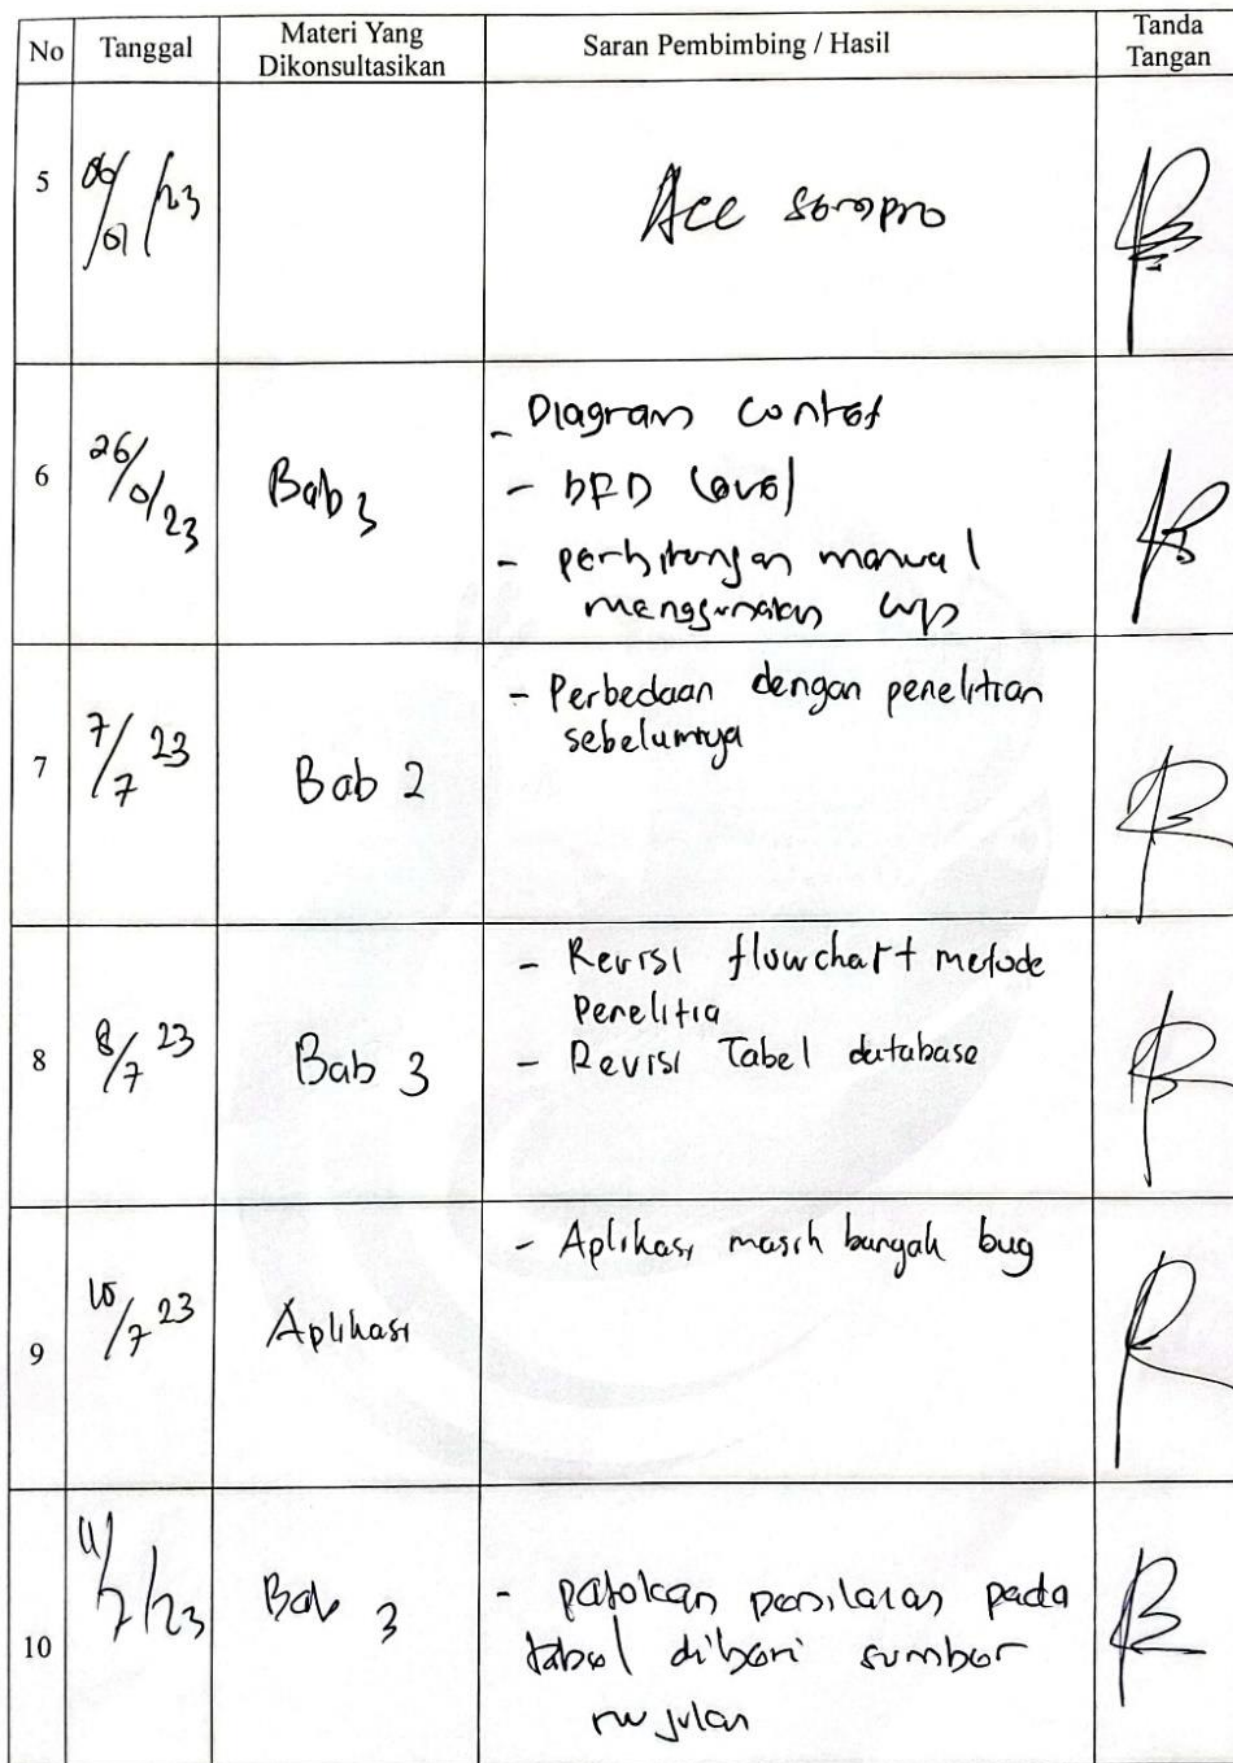 No Tanggal Materi Yang Dikonsultasikan Saran Pembimbing / Hasil Tanda Tangan
5 06/01/23 Acc sempro
6 26/01/23 Bab 3 - Diagram context
- DFD Level
- perhitungan manual
menggunakan wp
7 7/7 23 Bab 2 - Perbedaan dengan penelitian
sebelumnya
8 8/7 23 Bab 3 - Revisi flowchart metode
Penelitia
- Revisi Tabel database
9 10/7 23 Aplikasi - Aplikasi masih banyak bug
10 11/7/23 Bab 3 - patokan penilaian pada
tabel diberi sumber
rujukan